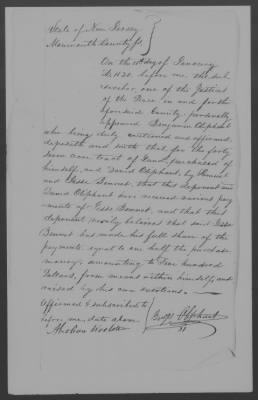 State of New Jersey
Monmouth County Ss
On the 10th day of January
AD 1820, before me the sub
scriber, one of the Justices
of the Peace in and for the
aforesaid County personally
appeared Benjamin Oliphant
who being duly cautioned and affirmed
deposeth and saith that for the forty
seven acre tract of Land purchased of
himself, and David Oliphant, by Samuel
and Jesse Bennet, that this deponent and
David Oliphant have received various pay
ments of Jesse Bennet and that this
deponent verily believes that said Jesse
Bennet has made his full share of the
payments equal to one half the purchase
money, amounting to Four hundred
Dollars, from means within himself, and
raised by his own exertions.
Affirmed & subscribed to
before me, date above
Benjn Oliphant